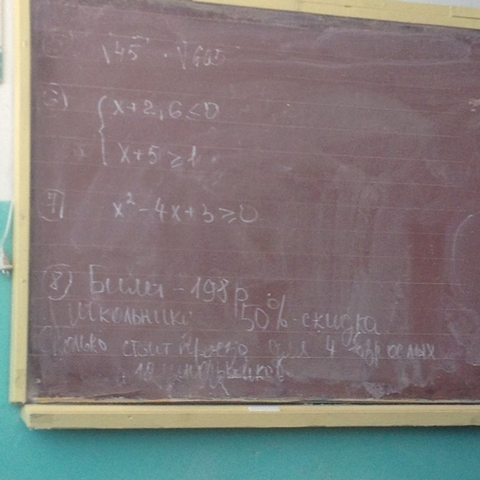 √45 · √605
6) { x+2,6≤0
x+5≥1
7) x²-4x+3≥0
8) Билет - 198р
Школьник: 50%-скидка
Сколько стоит проезд для 4 взрослых
12 школьников